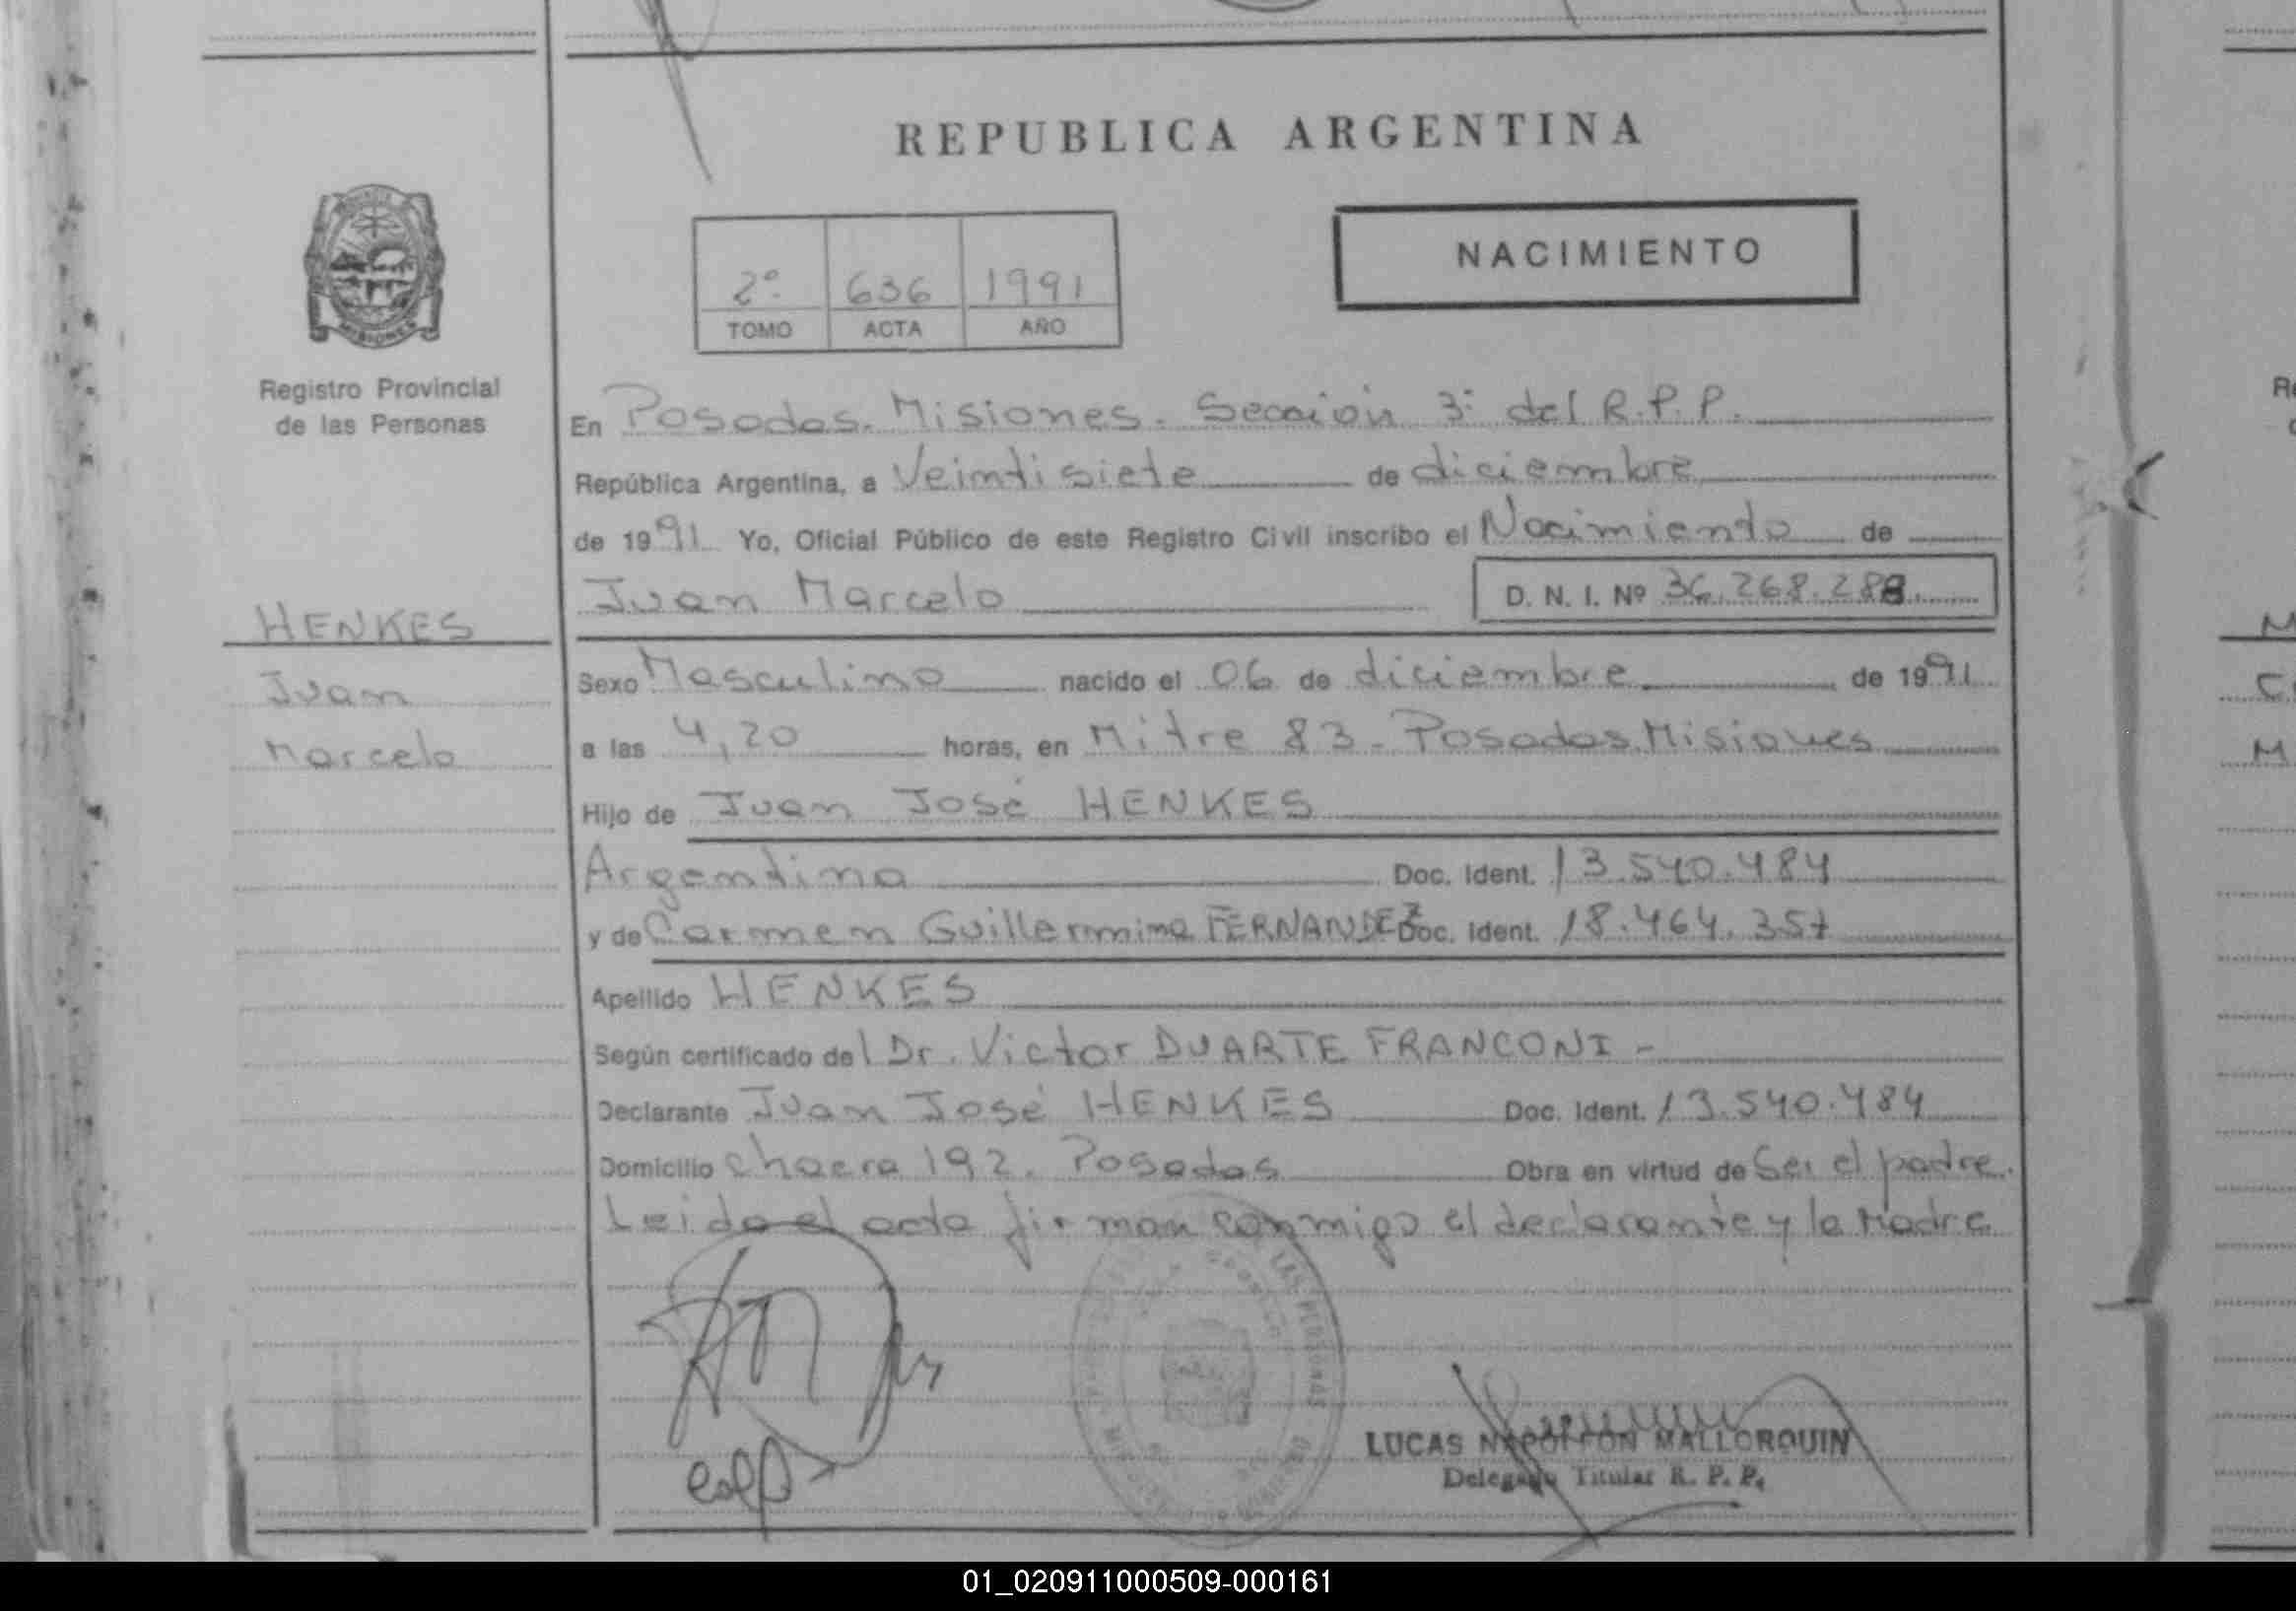 REPUBLICA ARGENTINA
NACIMIENTO
2º 636 1991
TOMO ACTA AÑO
MISIONES
Registro Provincial
de las Personas
HENKES
Juan
Marcelo
En Posadas. Misiones. Sección 3ª del R.P.P.
República Argentina, a Veintisiete de diciembre
de 1991 Yo, Oficial Público de este Registro Civil inscribo el Nacimiento de
Juan Marcelo D. N. I. Nº 36.268.288.
Sexo Masculino nacido el 06 de diciembre de 1991
a las 4,20 horas, en Mitre 83 - Posadas. Misiones
Hijo de Juan José HENKES
Argentina Doc. Ident. 13.540.484
y de Carmen Guillermina FERNANDEZ Doc. Ident. 18.464.357
Apellido HENKES
Según certificado del Dr. Victor DUARTE FRANCONI -
Declarante Juan José HENKES Doc. Ident. 13.540.484
Domicilio Chacra 192. Posadas Obra en virtud de Ser el padre.
Leida el acta firman conmigo el declarante y la Madre
LUCAS NAPOLEON MALLORQUIN
Delegado Titular R. P. P.
01_020911000509-000161